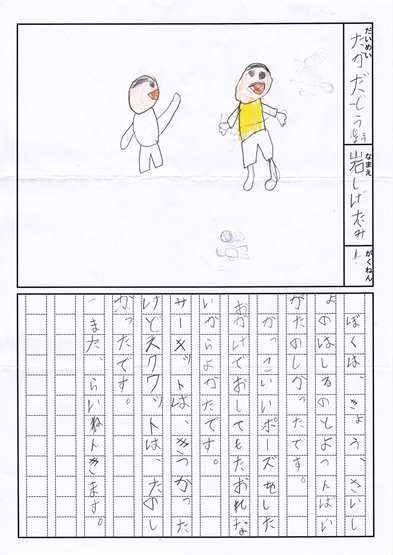 だいめい
たかだーどうじょう
なまえ
岩しげたみ
がくねん
1
ぼくは、きょう、さいし
ょのはしるのとよっんばい
がたのしかったです。
かっこいいポーズをした
おかげでおしてもたおれな
いからよかたです。
サーキットは、きつかった
けどスクワットは、たのし
かったです。
また、らいねんきます。